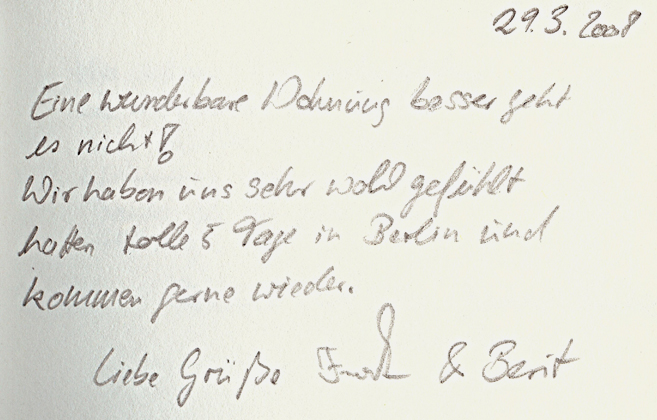 29.3.2008
Eine wunderbare Wohnung besser geht
es nicht!
Wir haben uns sehr wohl gefühlt
hatten tolle 5 Tage in Berlin und
kommen gerne wieder.
Liebe Grüße & Berit